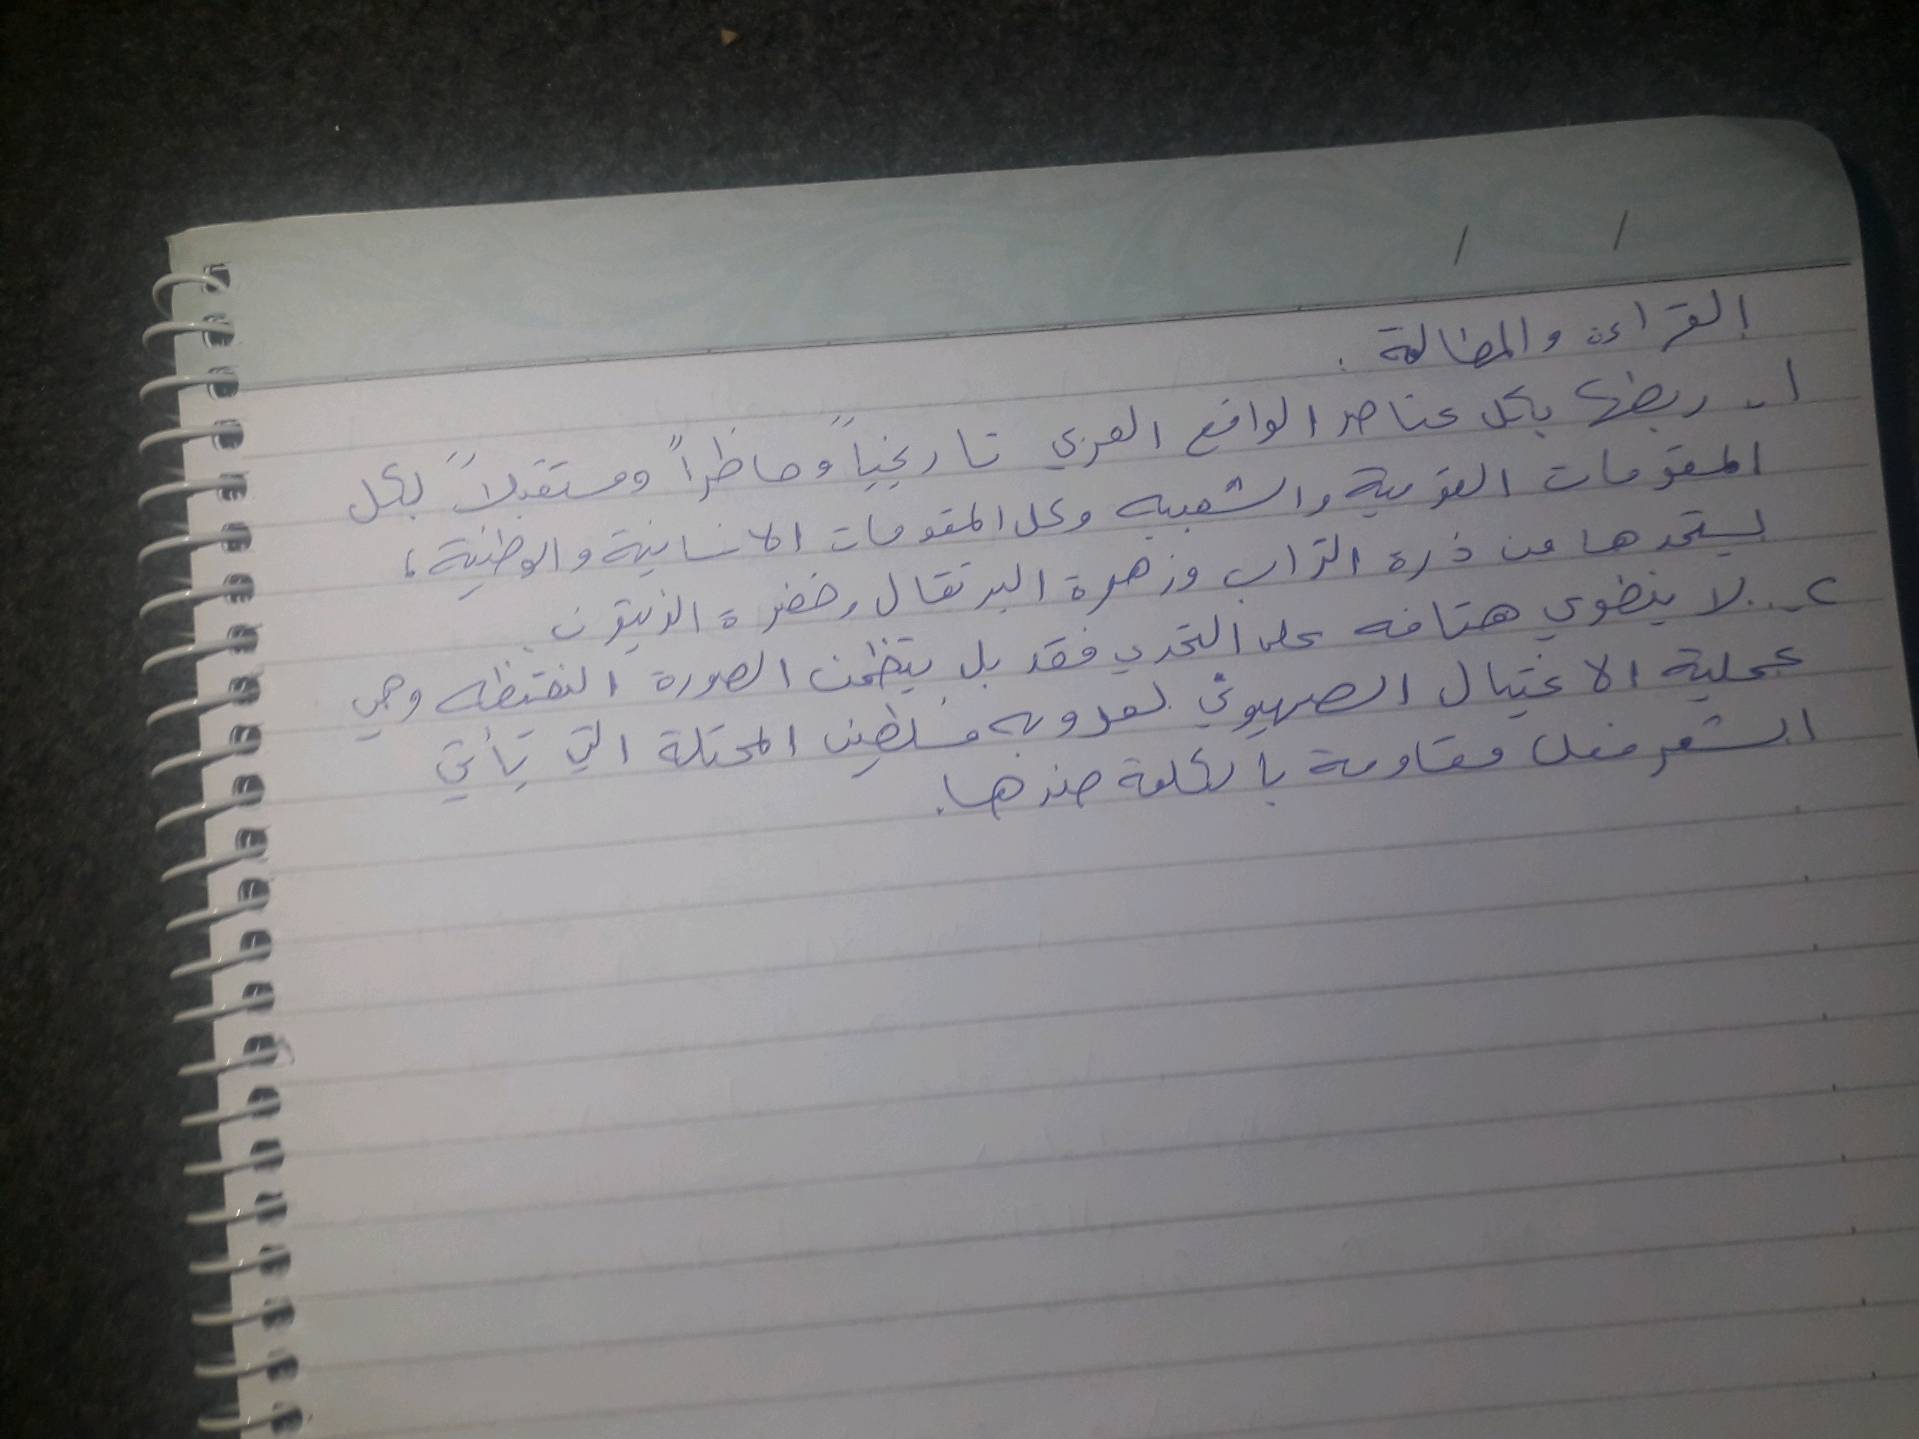 القراءة والمطالعة :
١- ربطها بكل عناصر الواقع العربي تاريخياً وحاظراً ومستقبلاً بكل
المقومات القومية والشعبيه وكل المقومات الانسانية والوطنية ،
يستمدها من ذرة التراب وزهرة البرتقال وخضرة الزيتون .
٢- لا ينطوي هتافه على التحدي فقد بل يتظمن الصورة النقيظه وهي
عملية الاغتيال الصهيوني لعروبه فلسطين المحتلة التي يأتي
الشعر فعل مقاومة بالكلمة ضدها .